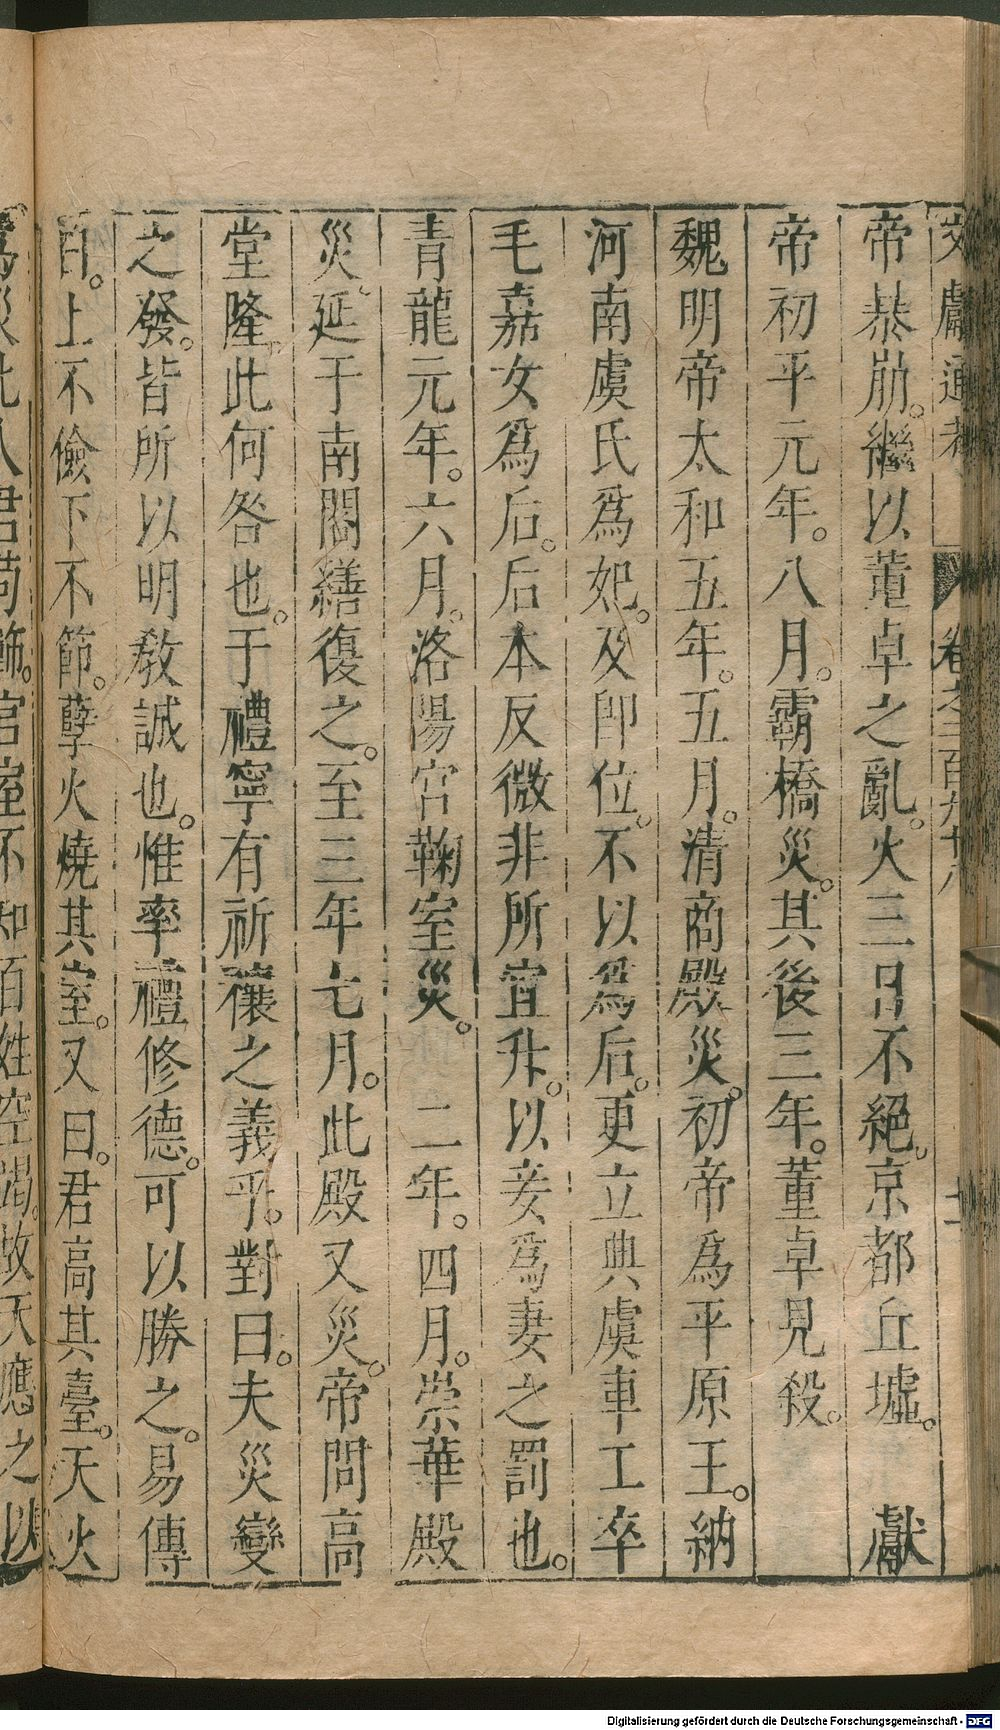 文獻通考 卷之二百九十八 十一
帝恭崩。繼以董卓之亂。火三日不絕。京都丘墟。 獻
帝初平元年。八月。霸橋災。其後三年。董卓見殺。
魏明帝太和五年。五月。清商殿災。初帝為平原王。納
河南虞氏為妃。及卽位。不以為后。更立典虞車工卒
毛嘉女為后。后本反微非所宜升。以妾為妻之罰也。
青龍元年。六月。洛陽宮鞠室災。 二年。四月。崇華殿
災。延于南閣繕復之。至三年七月。此殿又災。帝問高
堂隆。此何咎也。于禮寧有祈禳之義乎。對曰。夫災變
之發。皆所以明教誡也。惟率禮修德。可以勝之。易傳
曰。上不儉下不節。孽火燒其室。又曰。君高其臺。天火
為災此人君苟飾。宮室不知百姓空竭。故天應之以
Digitalisierung gefördert durch die Deutsche Forschungsgemeinschaft - DFG